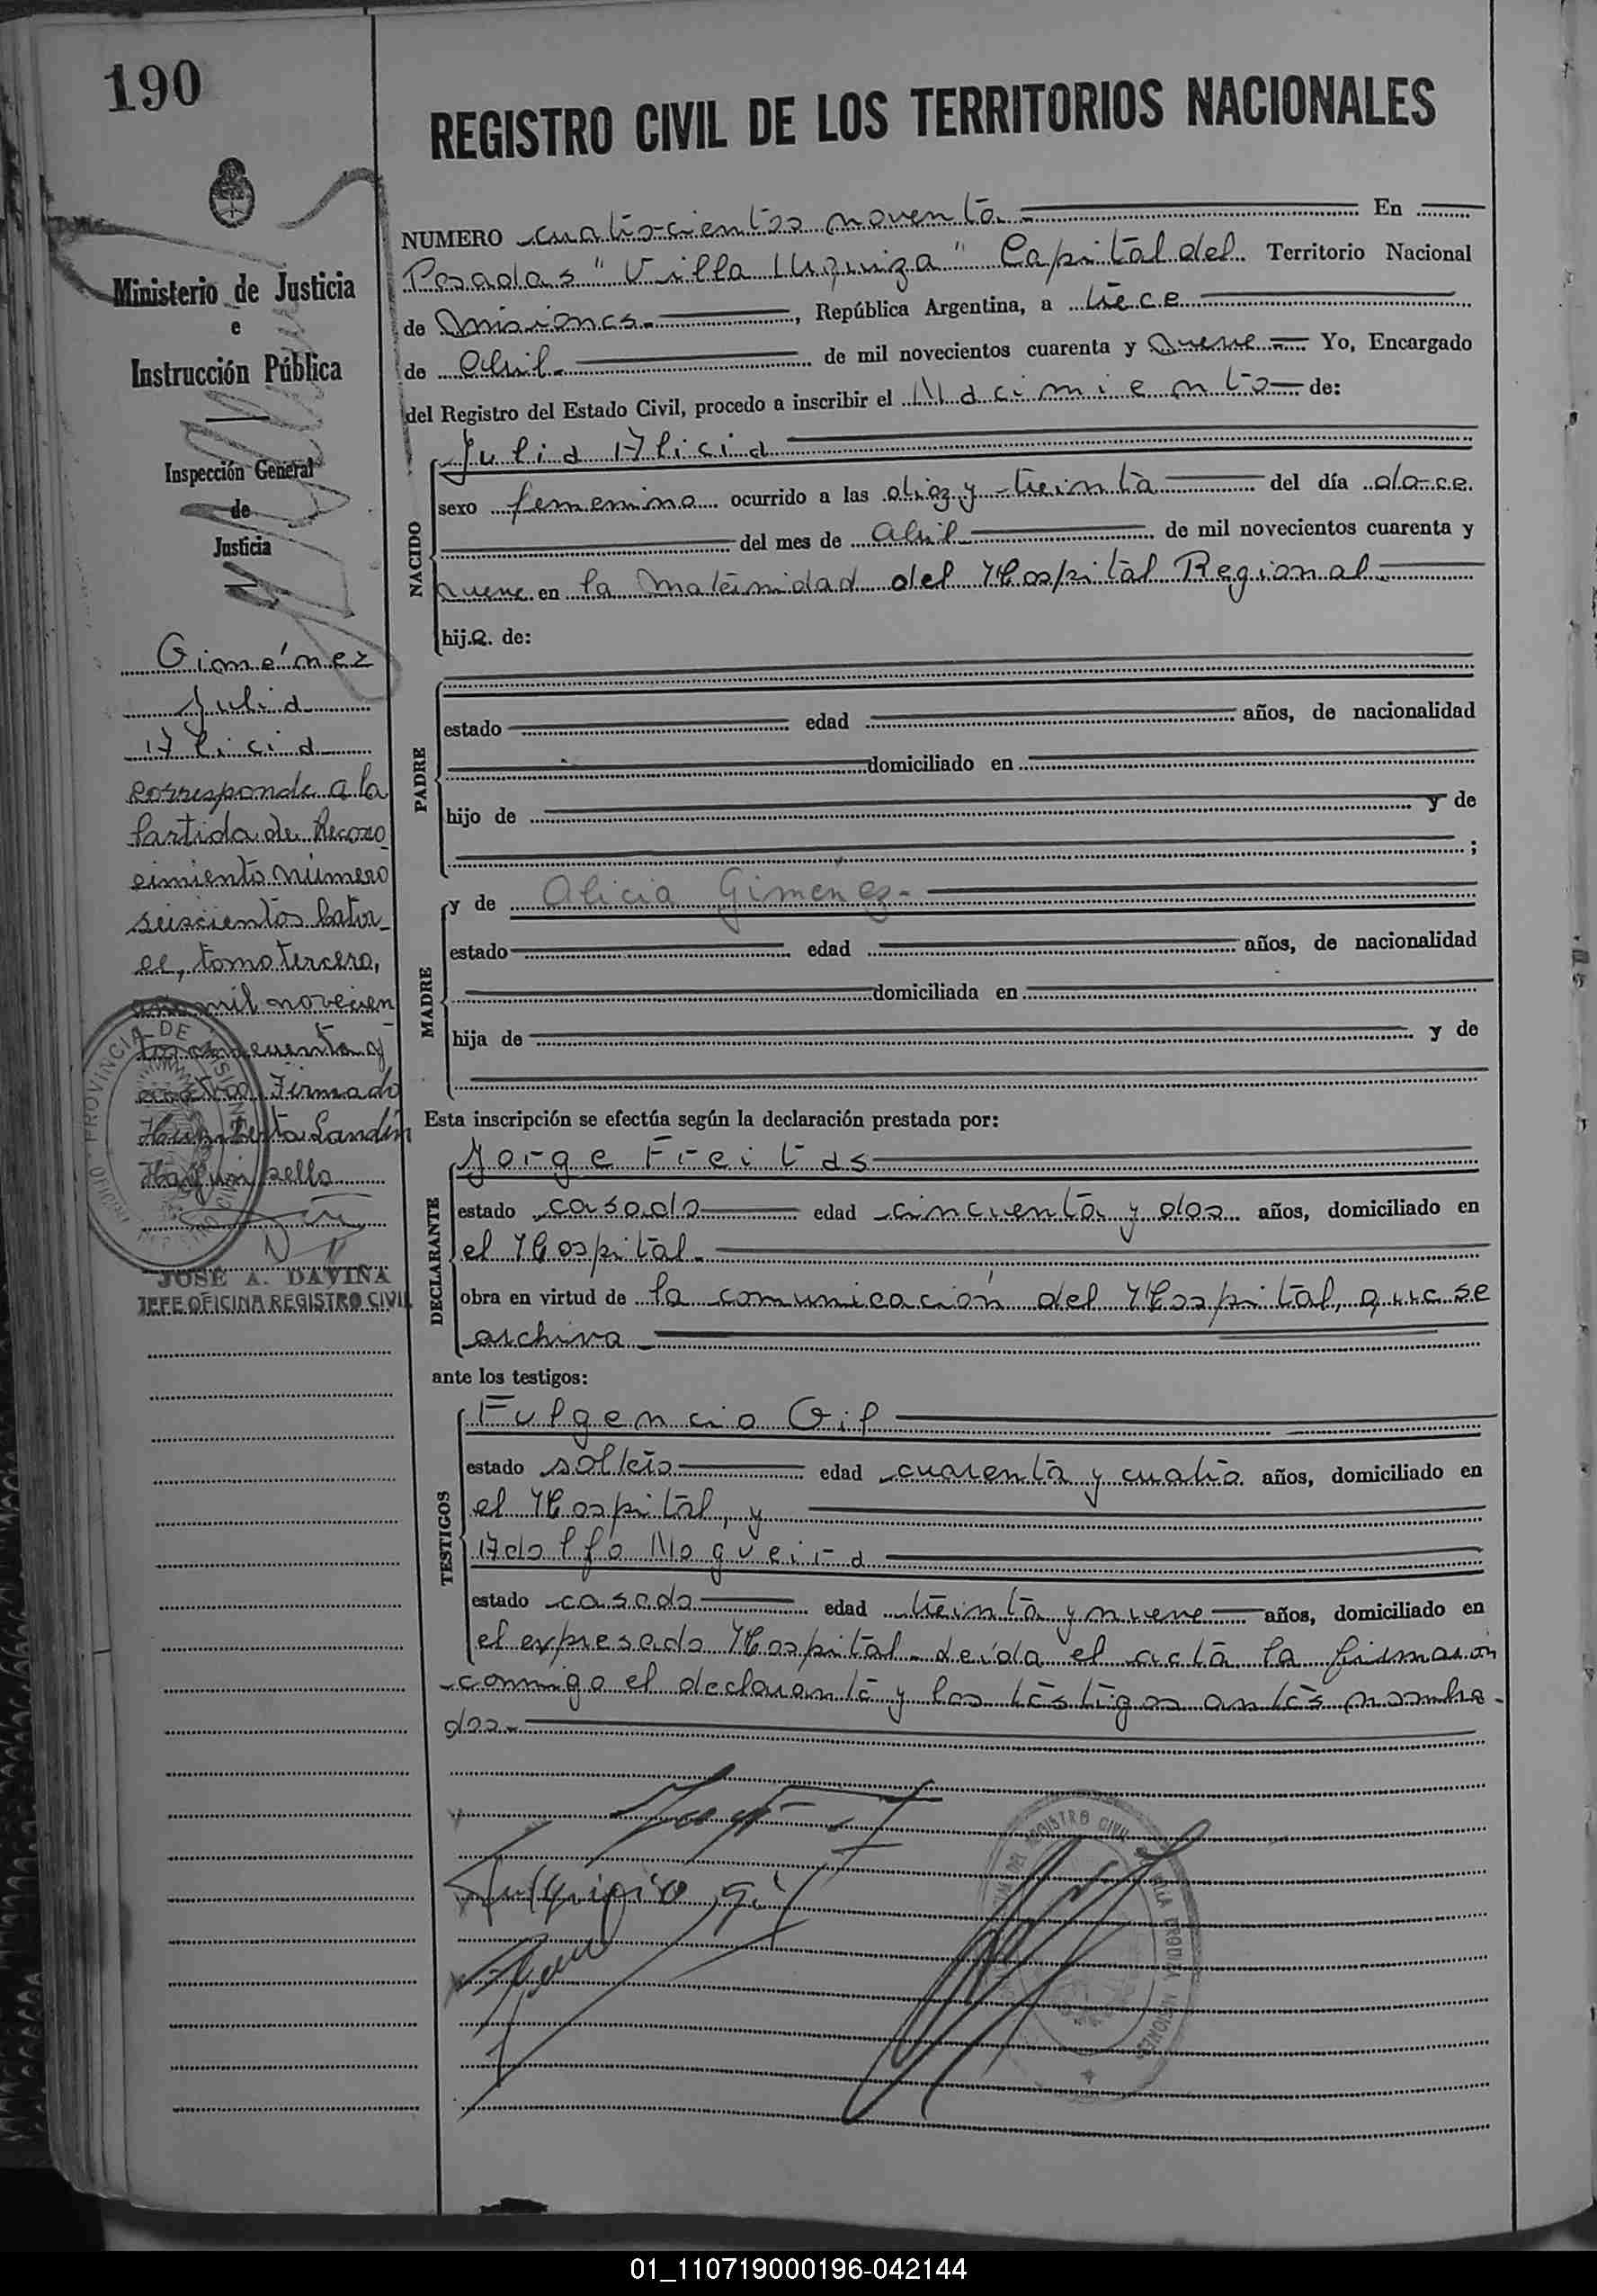 190
REGISTRO CIVIL DE LOS TERRITORIOS NACIONALES
Ministerio de Justicia
e
Instrucción Pública
Inspección General
de
Justicia
Giménez
Julia
Alicia
corresponde a la
Partida de Recono
cimiento número
seiscientos cator_
ce, tomo tercero,
año mil novecien
tos cincuenta y
cuatro. Firmado
Humberto Landín
Hay un sello
JOSE A. DAVIÑA
JEFE OFICINA REGISTRO CIVIL
NUMERO cuatrocientos noventa. En
Posadas "Villa Urquiza" Capital del Territorio Nacional
de Misiones. , República Argentina, a trece
de Abril. de mil novecientos cuarenta y nueve Yo, Encargado
del Registro del Estado Civil, procedo a inscribir el Nacimiento de:
NACIDO
Julia Alicia
sexo femenino ocurrido a las diez y treinta del día doce
del mes de Abril de mil novecientos cuarenta y
nueve en la Maternidad del Hospital Regional
hija de:
PADRE
estado edad años, de nacionalidad
domiciliado en
hijo de y de
;
MADRE
y de Alicia Gimenez-
estado edad años, de nacionalidad
domiciliada en
hija de y de
Esta inscripción se efectúa según la declaración prestada por:
DECLARANTE
Jorge Freitas
estado casado edad cincuenta y dos años, domiciliado en
el Hospital.
obra en virtud de la comunicación del Hospital, que se
archiva
ante los testigos:
TESTIGOS
Fulgencio Gil
estado soltero edad cuarenta y cuatro años, domiciliado en
el Hospital, y
Adolfo Nogueira
estado casado edad treinta y nueve años, domiciliado en
el expresado Hospital. Leída el acta la firmaron
conmigo el declarante y los testigos antes nombra-
dos.
01_110719000196-042144